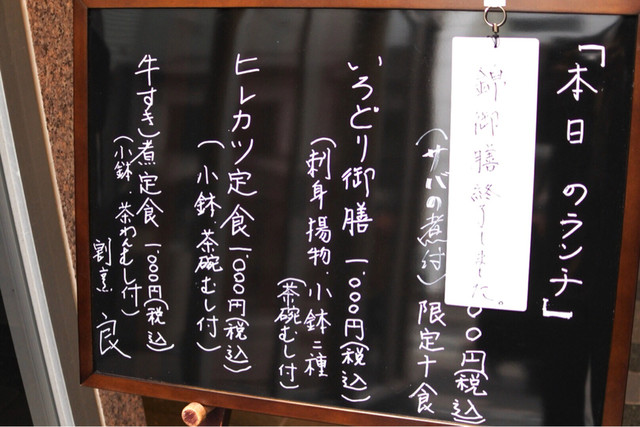 「本日 のランチ」
錦御膳終了しました。
00円(税込)
(サバの煮付) 限定十食
いろどり御膳 一、〇〇〇円(税込)
(刺身 揚物 小鉢二種
(茶碗むし付)
ヒレカツ定食 一、〇〇〇円(税込)
(小鉢 茶碗むし付)
牛すき煮定食 一、〇〇〇円(税込)
(小鉢、茶わんむし付)
割烹 良